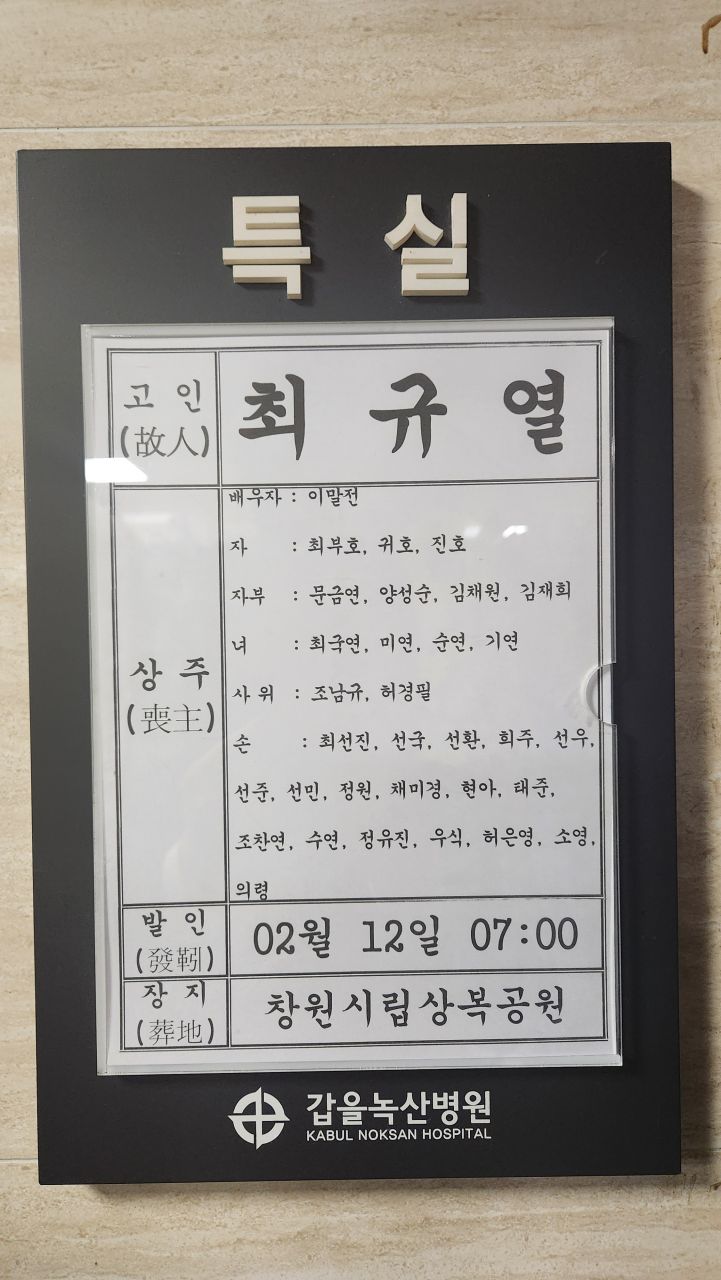 특 실
고 인
(故人)
최 규 열
상 주
(喪主)
배우자 : 이말전
자 : 최부호, 귀호, 진호
자부 : 문금연, 양성순, 김채원, 김재희
녀 : 최국연, 미연, 순연, 기연
사위 : 조남규, 허경필
손 : 최선진, 선국, 선환, 희주, 선우,
선준, 선민, 정원, 채미경, 현아, 태준,
조찬연, 수연, 정유진, 우식, 허은영, 소영,
의령
발 인
(發靷)
02월 12일 07:00
장 지
(葬地)
창원시립상복공원
갑을녹산병원
KABUL NOKSAN HOSPITAL